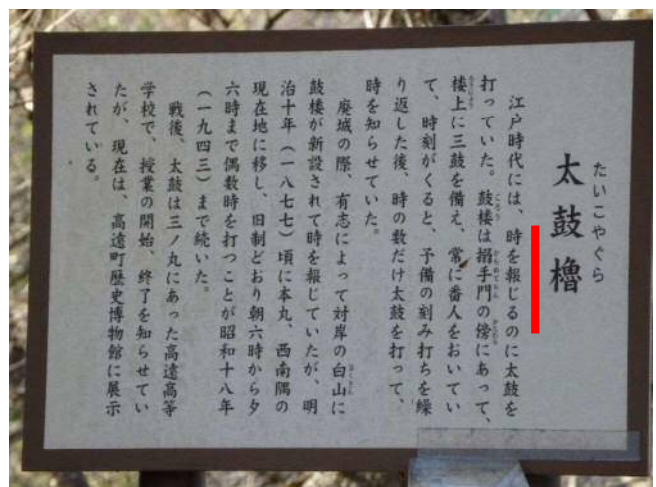 太鼓櫓
たいこやぐら
江戸時代には、時を報じるのに太鼓を
打っていた。鼓楼は搦手門の傍にあって、
楼上に三鼓を備え、常に番人をおいてい
て、時刻がくると、予備の刻み打ちを繰
り返した後、時の数だけ太鼓を打って、
時を知らせていた。
廃城の際、有志によって対岸の白山に
鼓楼が新設されて時を報じていたが、明
治十年(一八七七)頃に本丸、西南隅の
現在地に移し、旧制どおり朝六時から夕
六時まで偶数時を打つことが昭和十八年
(一九四三)まで続いた。
戦後、太鼓は三ノ丸にあった高遠高等
学校で、授業の開始、終了を知らせてい
たが、現在は、高遠町歴史博物館に展示
されている。